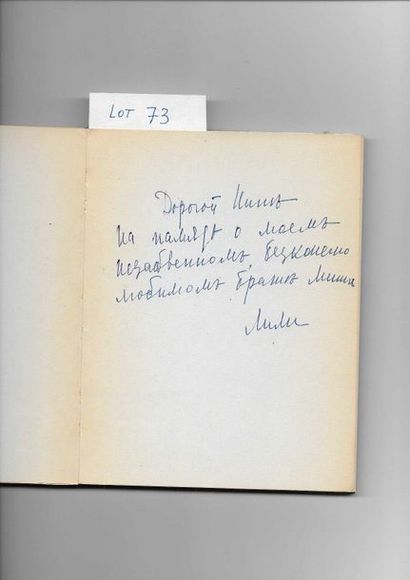 LOT 73
Дорогой Нинѣ
на память о моемъ
незабвенномъ безконечно
любимомъ братѣ Миши
Лили